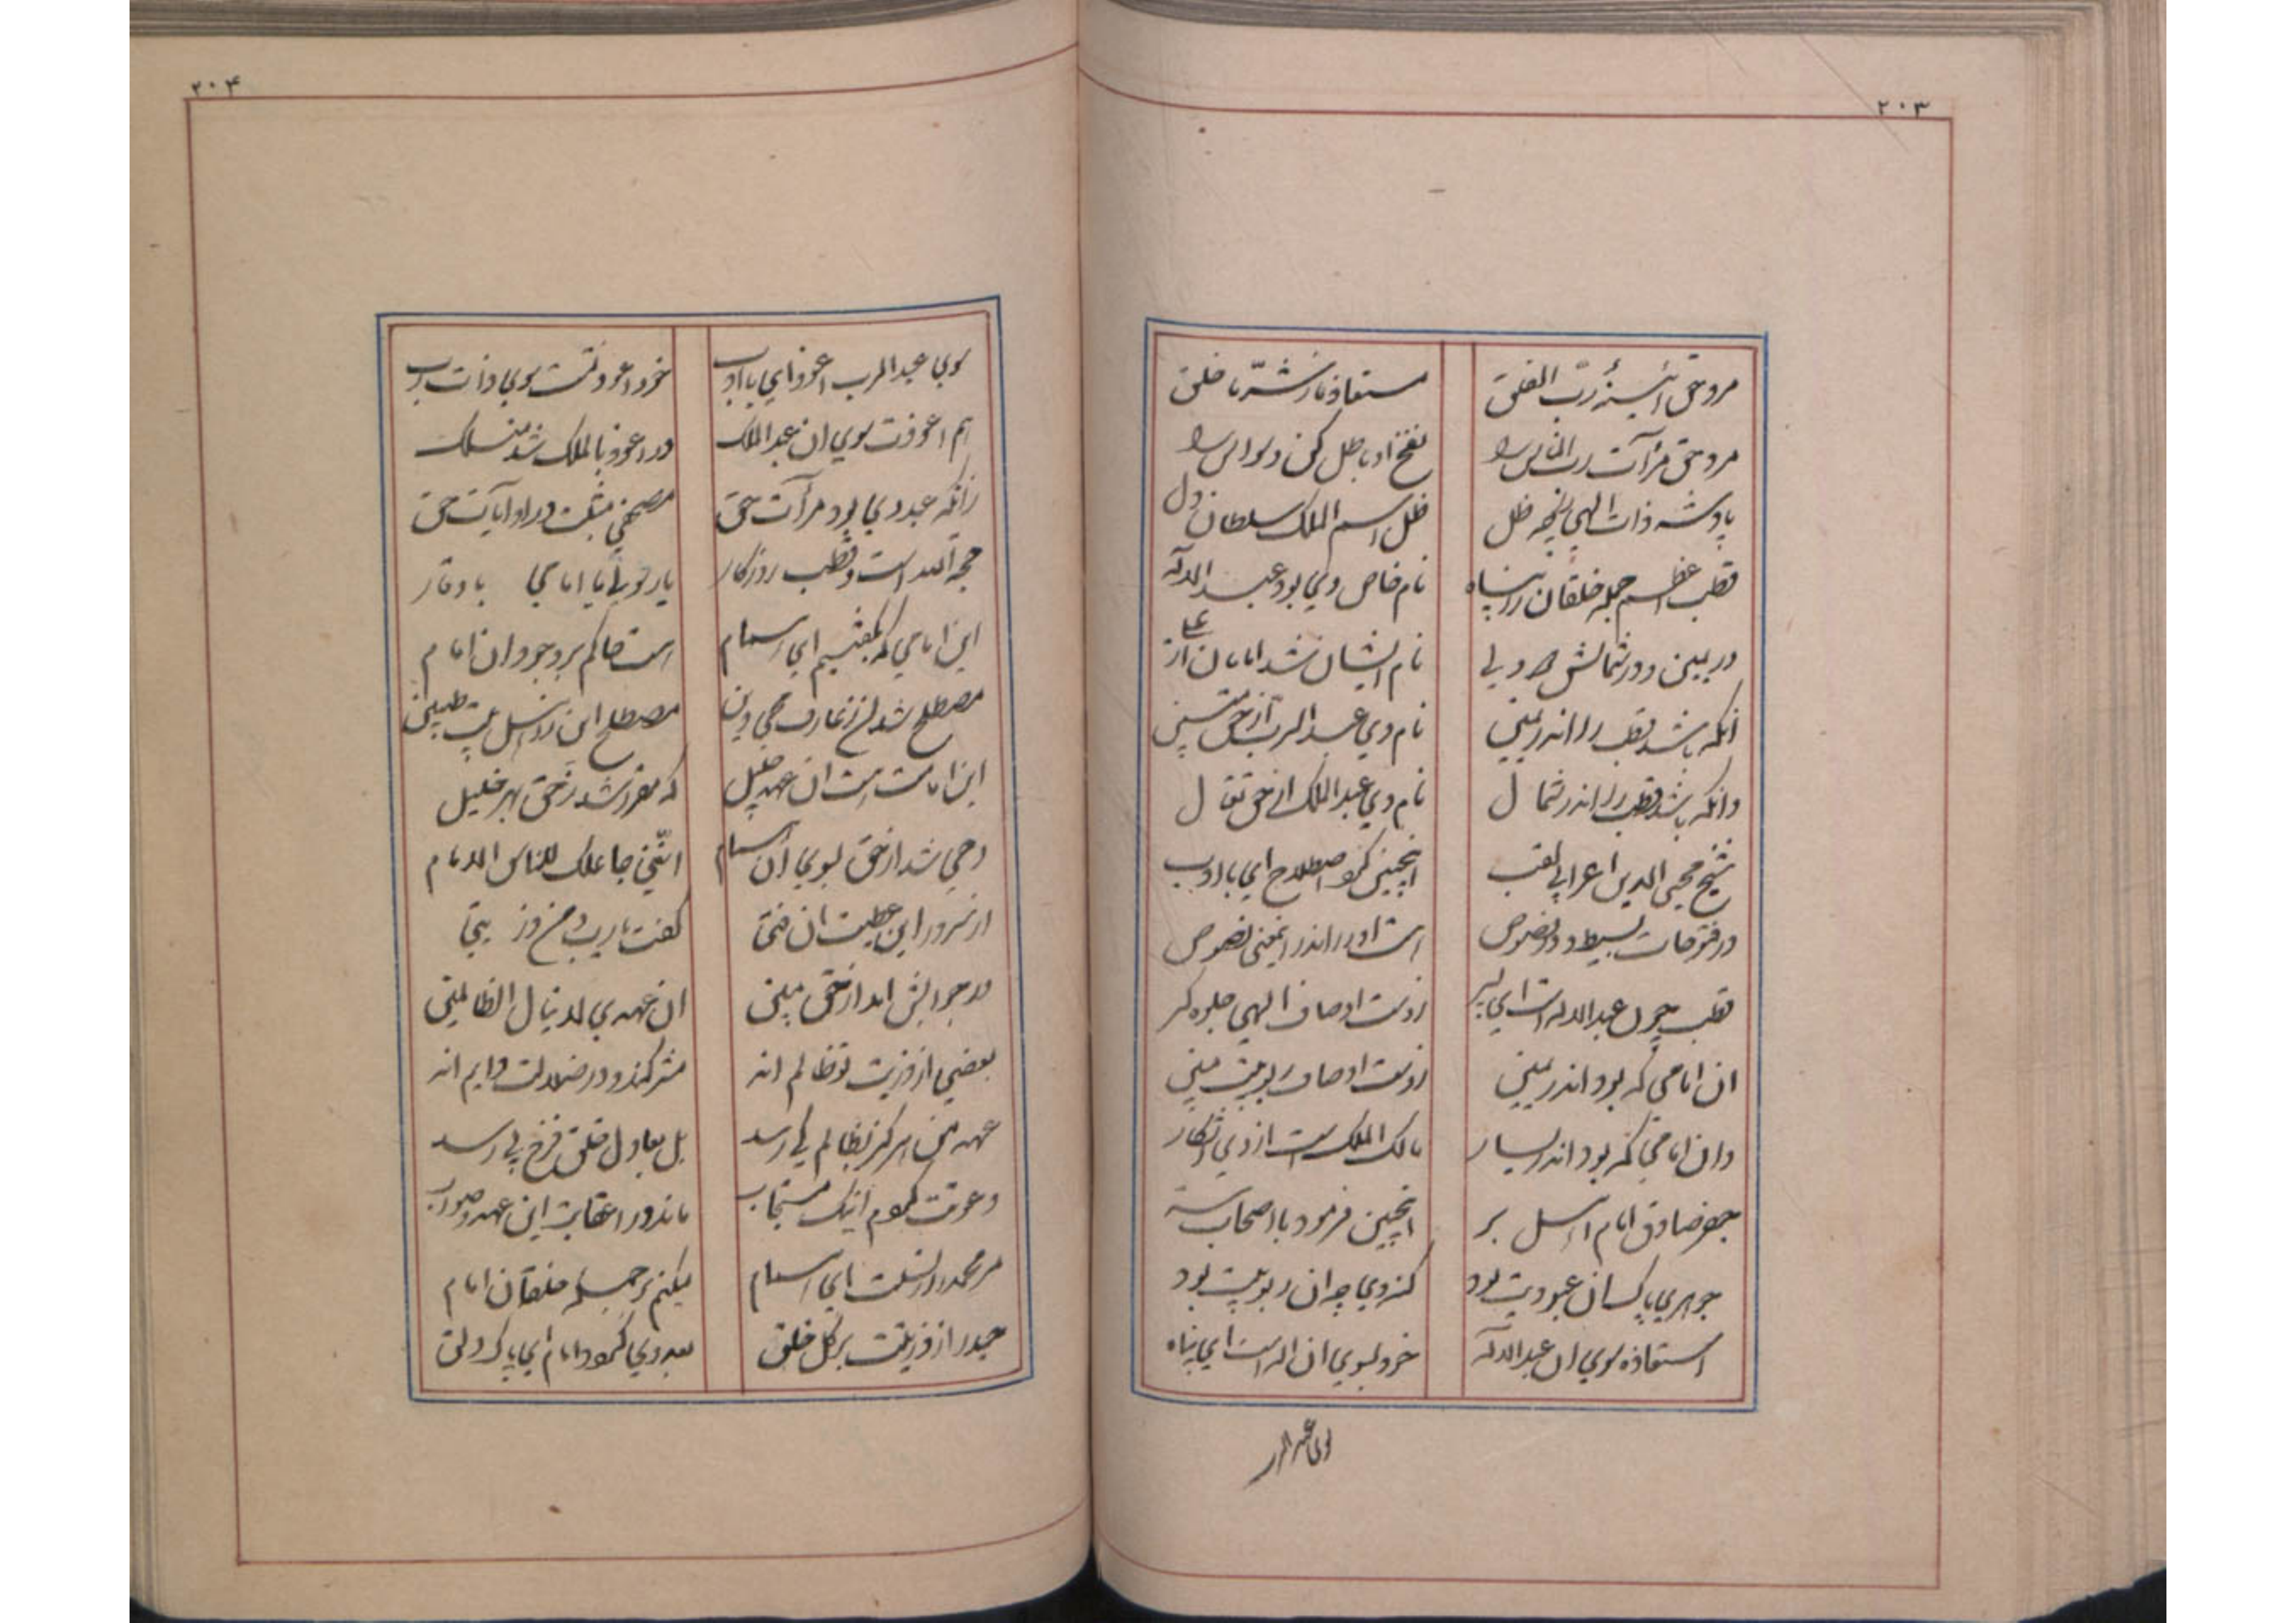 ۲۰۳
مرد حق آئینهٔ رب الفلق مستعاذ ما ز شر ما خلق
مرد حق مرآت رب الناس را نفخ او باطل کن وسواس را
پادشه ذات الهی را چه ظل ظل اسم الملک سلطان دل
قطب اعظم جمله خلقان را پناه نام خاص وی بود عبد الاله
در یمین و در شمالش دو ولی نام ایشان شد امامان از علی
آنکه باشد قطب را اندر یمین نام وی عبد الرب از حق
وانکه باشد قطب را اندر شمال نام وی عبد الملک از حق تعال
شیخ محیی الدین اعرابی لقب اینچنین کرد اصطلاح ای با ادب
در فتوحات بسیط و در فصوص است او را اندر اینمعنی نصوص
قطب چون عبد الاله است ای پسر زوست اوصاف الهی جلوه کر
ان امامی که بود اندر یمین زوست اوصاف ربوبیت مبین
وان امامی که بود اندر یسار مالک الملک است از وی آشکار
جعفر صادق امام انس و بر اینچنین فرمود با اصحاب
جوهری پاکسان عبودیت بود کنه وی چه ان ربوبیت بود
استعاذه سوی ان عبد الاله خود بسوی ان اله است ای پناه
سوی عبد الرب
۲۰۴
سوی عبد الرب اعوذ ای با ادب خود اعوذ تست سوی ذات رب
هم اعوذت سوی ان عبد الملک در اعوذ بالملک شد منسلک
زانکه عبد وی بود مرآت حق مصحفی مثبت در او آیات حق
حجة الله است و قطب روزکار یا ولی یا امامی با وقار
این امامی که بکفتیم ای همام است حاکم بر وجود ان امام
مصطلح شد از عارف محی دین مصطلح این را طیبین
این امامت است ان عهد جلیل که مقرر شد ز حق بهر خلیل
وحی شد از حق بسوی آن همام انّی جاعلک للناس الامام
از سرور این عطیت ان فتی کفت یا رب و من ذریتی
در جوابش امد از حق مبین ان عهدی لا ینال الظالمین
بعضی از ذریت تو ظالم اند مشرکند و در ضلالت دایم اند
عهد من هرکز بظالم کی رسد بل بعادل خلق فرخ پی رسد
دعوتت کردم اینک مستجاب ماند در اعقابت این عهد صواب
مر محمد را ز نسلت ای همام میکنم بر جمله خلقان امام
حیدر از ذریتت بر کل خلق بعد وی کردد امام ای پاک دلق